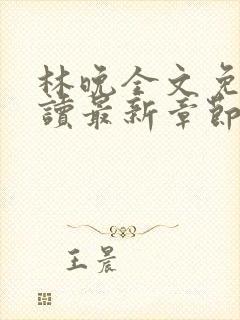 林晚全文免
讀最新章節
王晨